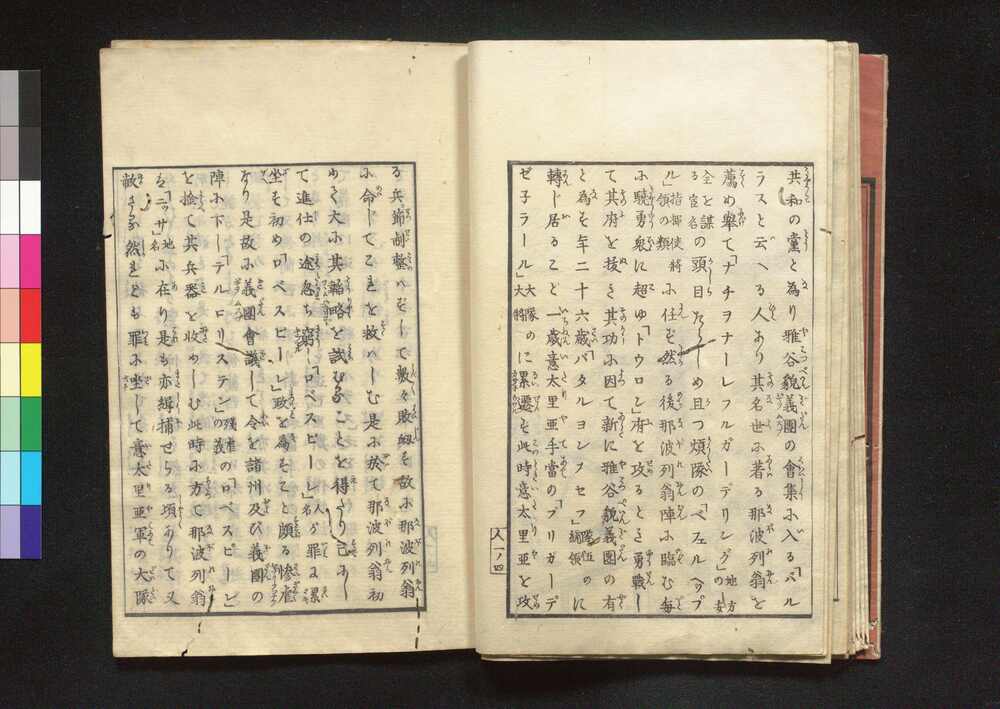 共和の黨と為り雅谷貌義團の會集に入る「バル
ラスと云へる人あり其名世に著る那波列翁を
薦め擧て「ナチヲナーレフルガーデリング」の地方安
全を謀る官名の頭目たらしめ且つ煩隊の「ベヱルヘッブ
ル」指揮使将領の類に任ず然る後那波列翁陣に臨む毎
に驍勇衆に超ゆ「トウロン」府を攻るとき勇戰し
て其府を抜き其功に因て新に雅谷貌義團の有
と為る年二十六歳「バタルヨンレフセフ」隊伍の綱領に
轉じ居ること一歳意太里亜手當の「ブリガーデ
ゼ子ラール」大隊大将のに累遷す此時意太里亜を攻
一ノ四
る兵節制整はずして數々敗衂す故に那波列翁
に命じてこれを救はしむ是に於て那波列翁初
めて大に其韜略を試むることを得たり已にし
て進仕の途急ち窮し「ロベスピーレ」人名が罪に累
坐す初め「ロベスピーレ」政を為すこと頗る惨虐
なり是故に義團會議して令を諸州及び義團の
陣に下し「テルロリステン」残虐の義の「ロベスピーレ」と
を捨て其兵器を收めしむ此時に方て那波列翁
は「ニッサ」地名に在り是も亦緝捕せらる頃ありて又
赦さる然れども罪に坐して意太里亜軍の大隊